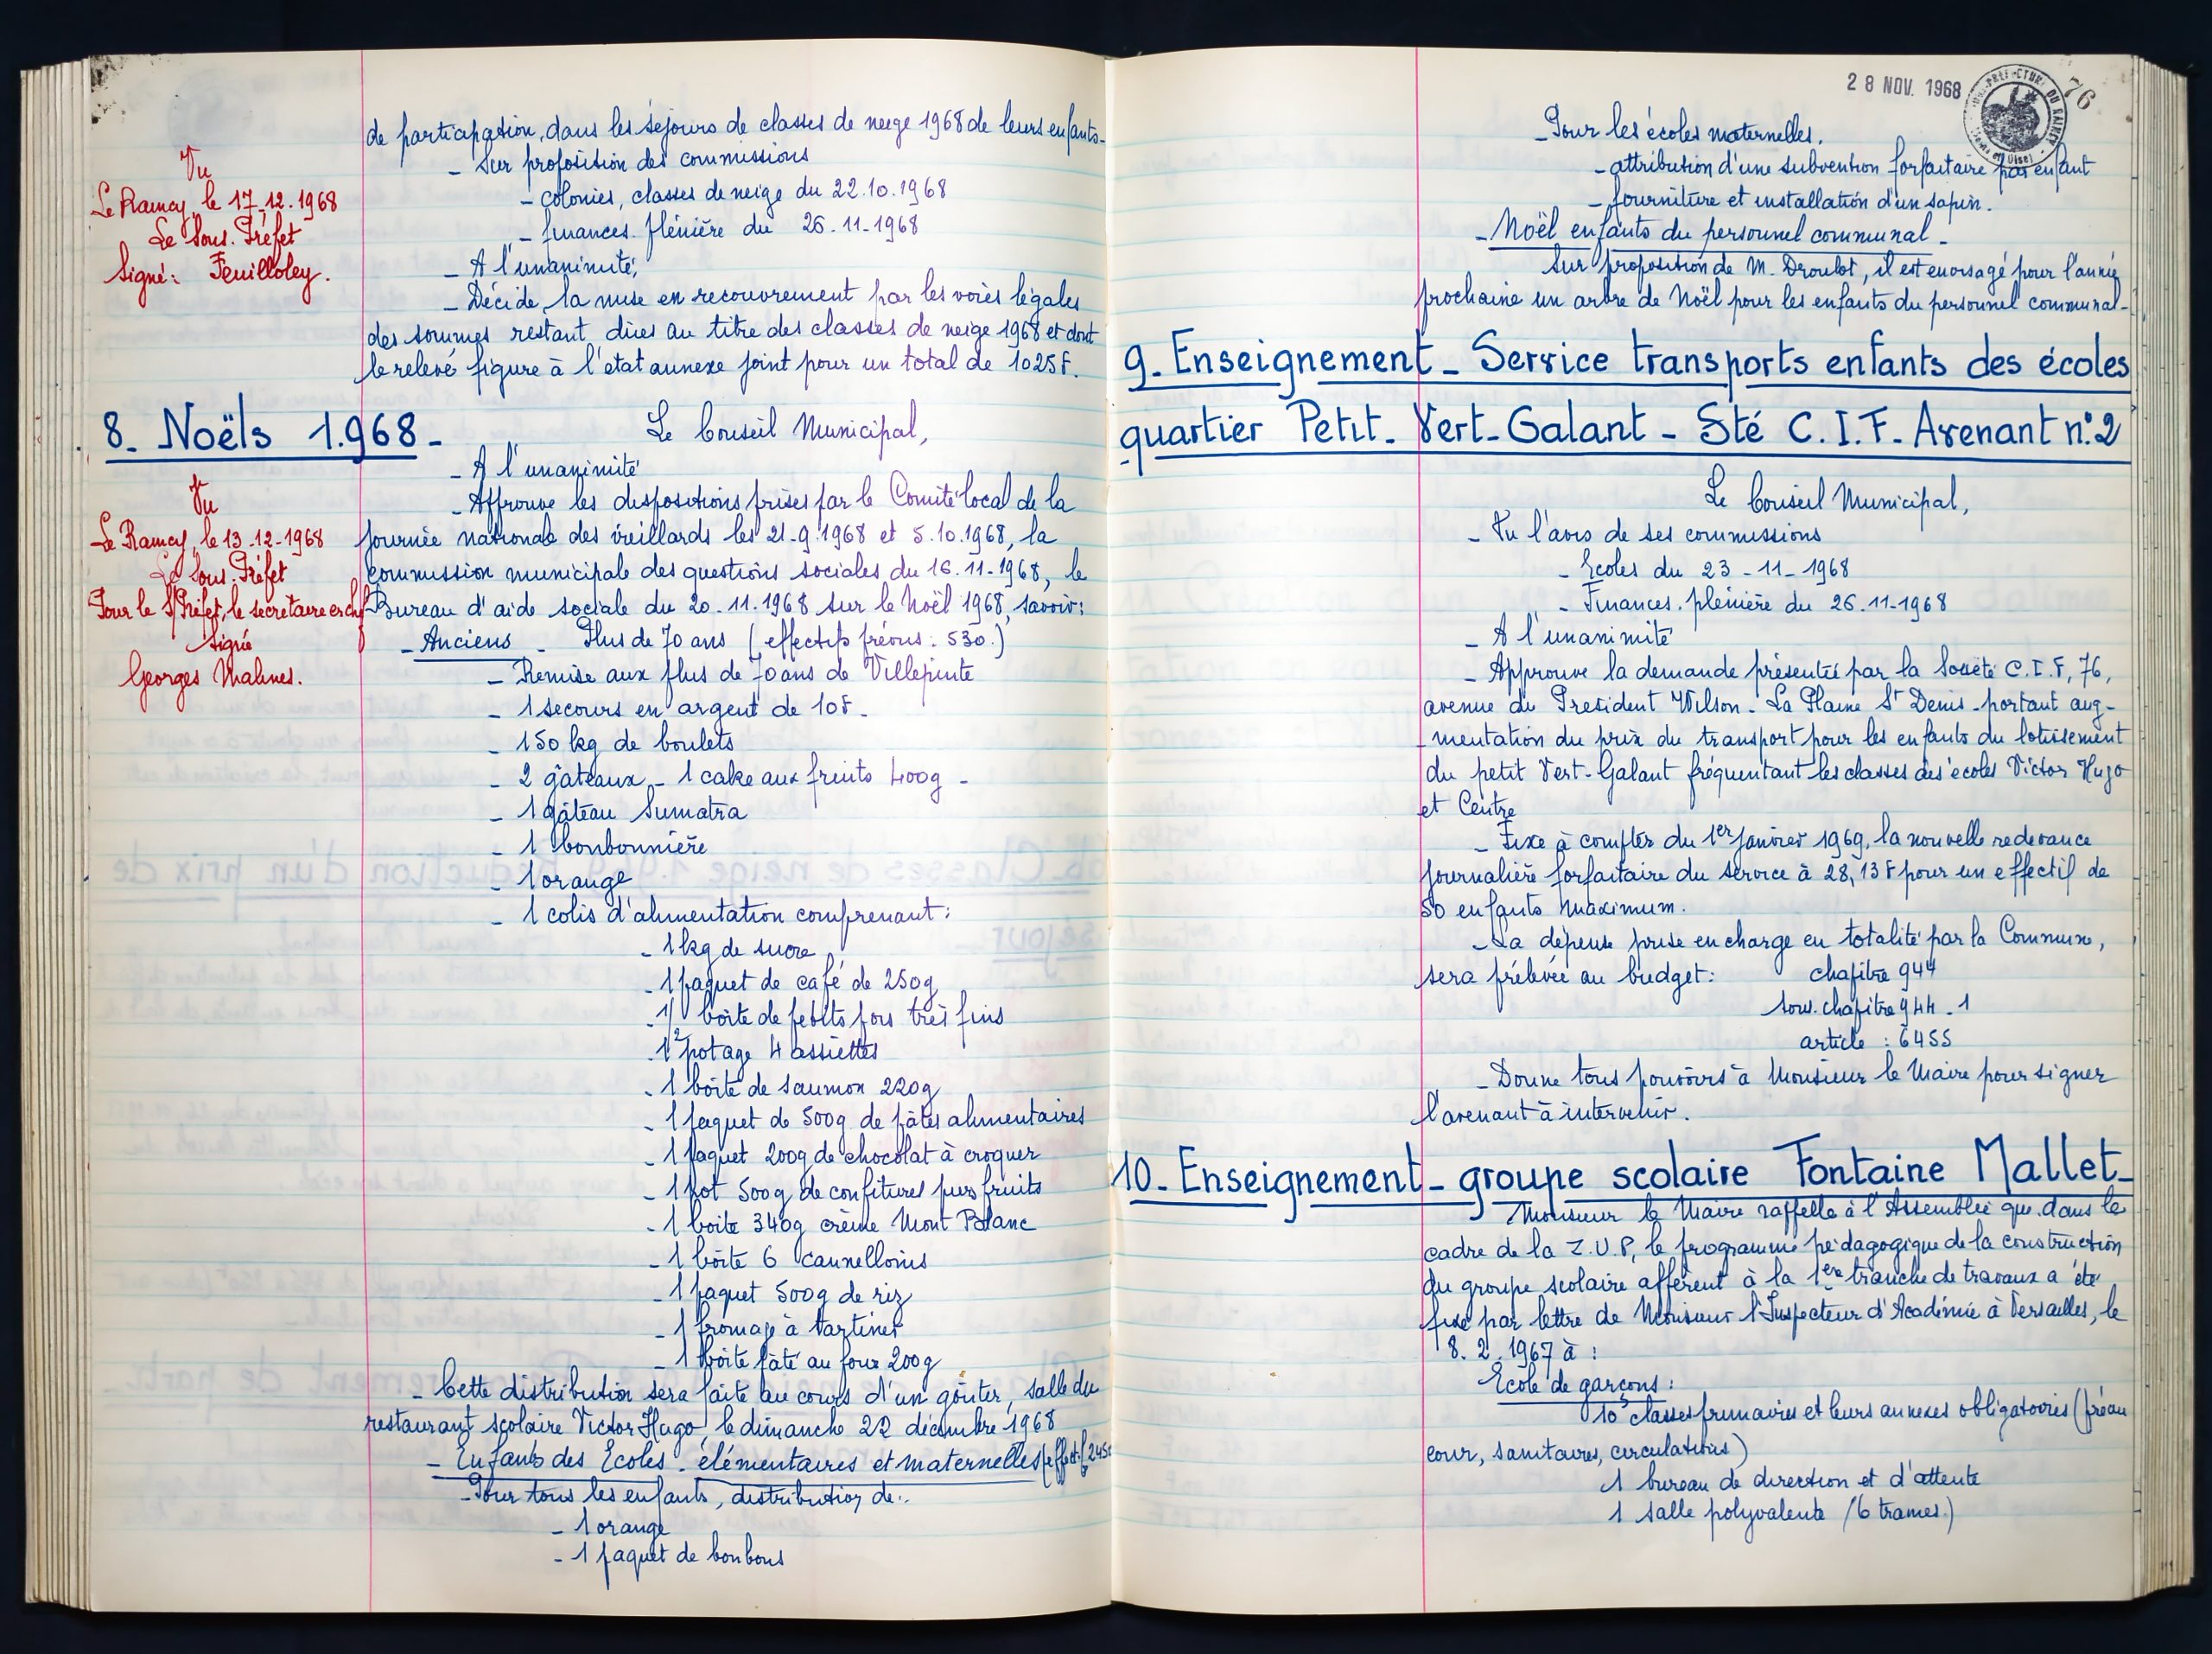 de participation, dans les séjours de classes de neige 1968 de leurs enfants-
- Sur proposition des commissions
- colonies, classes de neige du 22.10.1968
- finances plénière du 26.11.1968
- A l'unanimité,
- Décide, la mise en recouvrement par les voies légales
des sommes restant dûes au titre des classes de neige 1968 et dont
le relevé figure à l'état annexe joint pour un total de 1025F.
Vu
Le Raincy, le 17.12.1968
Le Sous. Préfet
Signé: Feuilloley.
8_ Noëls 1.968_
Le Conseil Municipal,
- A l'unanimité
- Approuve les dispositions prises par le Comité local de la
Journée nationale des vieillards les 21.9.1968 et 5.10.1968, la
commission municipale des questions sociales du 16.11.1968, le
Bureau d'aide sociale du 20.11.1968 sur le Noël 1968, savoir:
Vu
Le Raincy, le 13.12.1968
Le Sous. Préfet
Pour le S/Préfet, le secrétaire en chef
Signé
Georges Malines.
- Anciens - Plus de 70 ans (effectifs prévus: 530.)
- Remise aux plus de 70 ans de Villepinte
- 1 secours en argent de 10F.
- 150 kg de boulets
- 2 gâteaux - 1 cake aux fruits 400g -
- 1 gâteau Sumatra
- 1 bonbonnière
- 1 orange
- 1 colis d'alimentation comprenant:
- 1 kg de sucre
- 1 paquet de café de 250g
- 1/2 boîte de petits pois très fins
- 1 potage 4 assiettes
- 1 boîte de saumon 220g
- 1 paquet de 500g de pâtes alimentaires
- 1 paquet 200g de chocolat à croquer
- 1 pot 500g de confitures purs fruits
- 1 boite 340g crème Mont Blanc
- 1 boîte 6 cannellonis
- 1 paquet 500g de riz
- 1 fromage à tartiner
- 1 boîte pâté au four 200g
- Cette distribution sera faite au cours d'un goûter, salle du
restaurant scolaire Victor Hugo, le dimanche 22 décembre 1968
- Enfants des Ecoles - élémentaires et maternelles (effectif
- Pour tous les enfants, distribution de:
- 1 orange
- 1 paquet de bonbons
28 NOV. 1968
76
DU RAINCY
- Pour les écoles maternelles.
- attribution d'une subvention forfaitaire par enfant
- fourniture et installation d'un sapin.
- Noël enfants du personnel communal -
Sur proposition de M. Droulot, il est envisagé pour l'année
prochaine un arbre de Noël pour les enfants du personnel communal-
9_ Enseignement_ Service transports enfants des écoles
quartier Petit_ Vert_Galant _ Sté C.I.F_ Avenant n°2
Le Conseil Municipal,
- Vu l'avis de ses commissions
- Ecoles du 23-11-1968
- Finances plénière du 26.11.1968
- A l'unanimité
- Approuve la demande présentée par la Société C.I.F, 76,
avenue du Président Wilson - La Plaine St Denis - portant aug-
-mentation du prix du transport pour les enfants du lotissement
du petit Vert-Galant fréquentant les classes des écoles Victor Hugo
et Centre
- Fixe à compter du 1er janvier 1969, la nouvelle redevance
journalière forfaitaire du service à 28,13F pour un effectif de
50 enfants maximum.
- La dépense prise en charge en totalité par la Commune,
sera prélevée au budget: chapitre 944
sous. chapitre 944.1
article : 6455
- Donne tous pouvoirs à Monsieur le Maire pour signer
l'avenant à intervenir.
10_ Enseignement_ groupe scolaire Fontaine Mallet_
Monsieur le Maire rappelle à l'Assemblée que dans le
cadre de la Z.U.P, le programme pédagogique de la construction
du groupe scolaire afférent à la 1ère tranche de travaux a été
fixé par lettre de Monsieur l'Inspecteur d'Académie à Versailles, le
8.2.1967 à :
Ecole de garçons:
10 classes primaires et leurs annexes obligatoires (préau
cour, sanitaires, circulations)
1 bureau de direction et d'attente
1 salle polyvalente (6 trames)